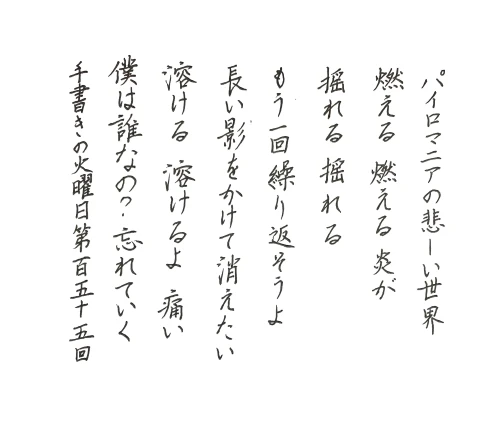 パイロマニアの悲しい世界
燃える 燃える 炎が
揺れる 揺れる
もう一回繰り返そうよ
長い影をかけて消えたい
溶ける 溶けるよ 痛い
僕は誰なの？忘れていく
手書きの火曜日第百五十五回